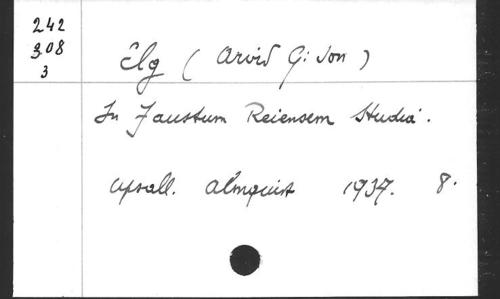 242
308
3
Elg (Arvid G:son)
In Faustum Reiensem Studia.
Upsall. Almquist 1937. 8.